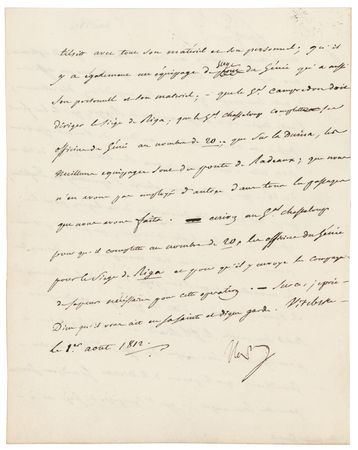 tilsitt avec tout son matériel et son personnel; qu'il
y a également un équipage de siège du Génie qui a aussi
son personnel et son matériel; - que le Gal Campredon doit
diriger le siège de Riga; que le Gal Chasseloup complette les
officiers du Génie au nombre de 20. que sur la Duina, les
meilleurs équipages sont des ponts de Radeaux; que nous
n'en avons pas employé d'autres dans tous les passages
que nous avons faits. - écrivez au Gal Chasseloup
pour qu'il complette au nombre de 20, les officiers du Génie
pour le siège de Riga et pour qu'il y envoye les Compagnies
de sapeurs nécessaires pour cette opération. - Sur ce, je prie
Dieu qu'il vous ait en sa sainte et digne garde. Vitebsk
le 1er août 1812.